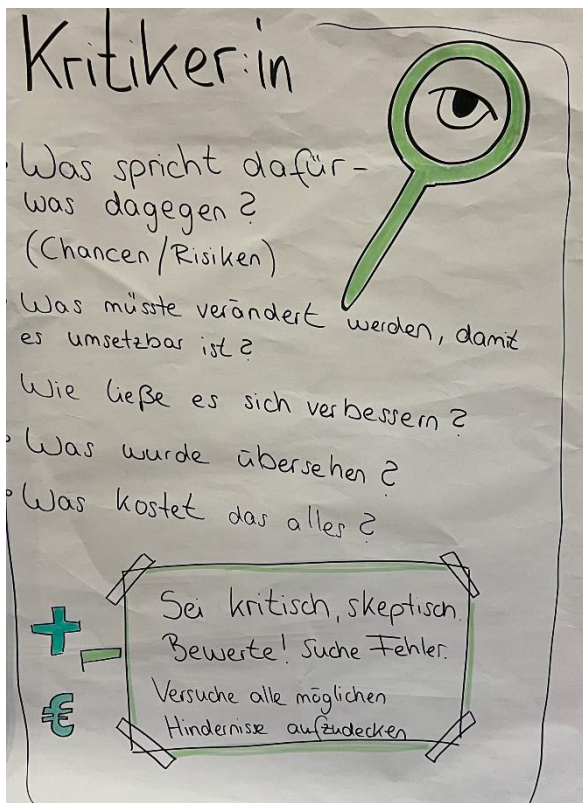 Kritiker:in
• Was spricht dafür-
was dagegen?
(Chancen/Risiken)
• Was müsste verändert werden, damit
es umsetzbar ist?
Wie ließe es sich verbessern?
• Was wurde übersehen?
• Was kostet das alles?
+
-
€
Sei kritisch, skeptisch.
Bewerte! Suche Fehler.
Versuche alle möglichen
Hindernisse aufzudecken